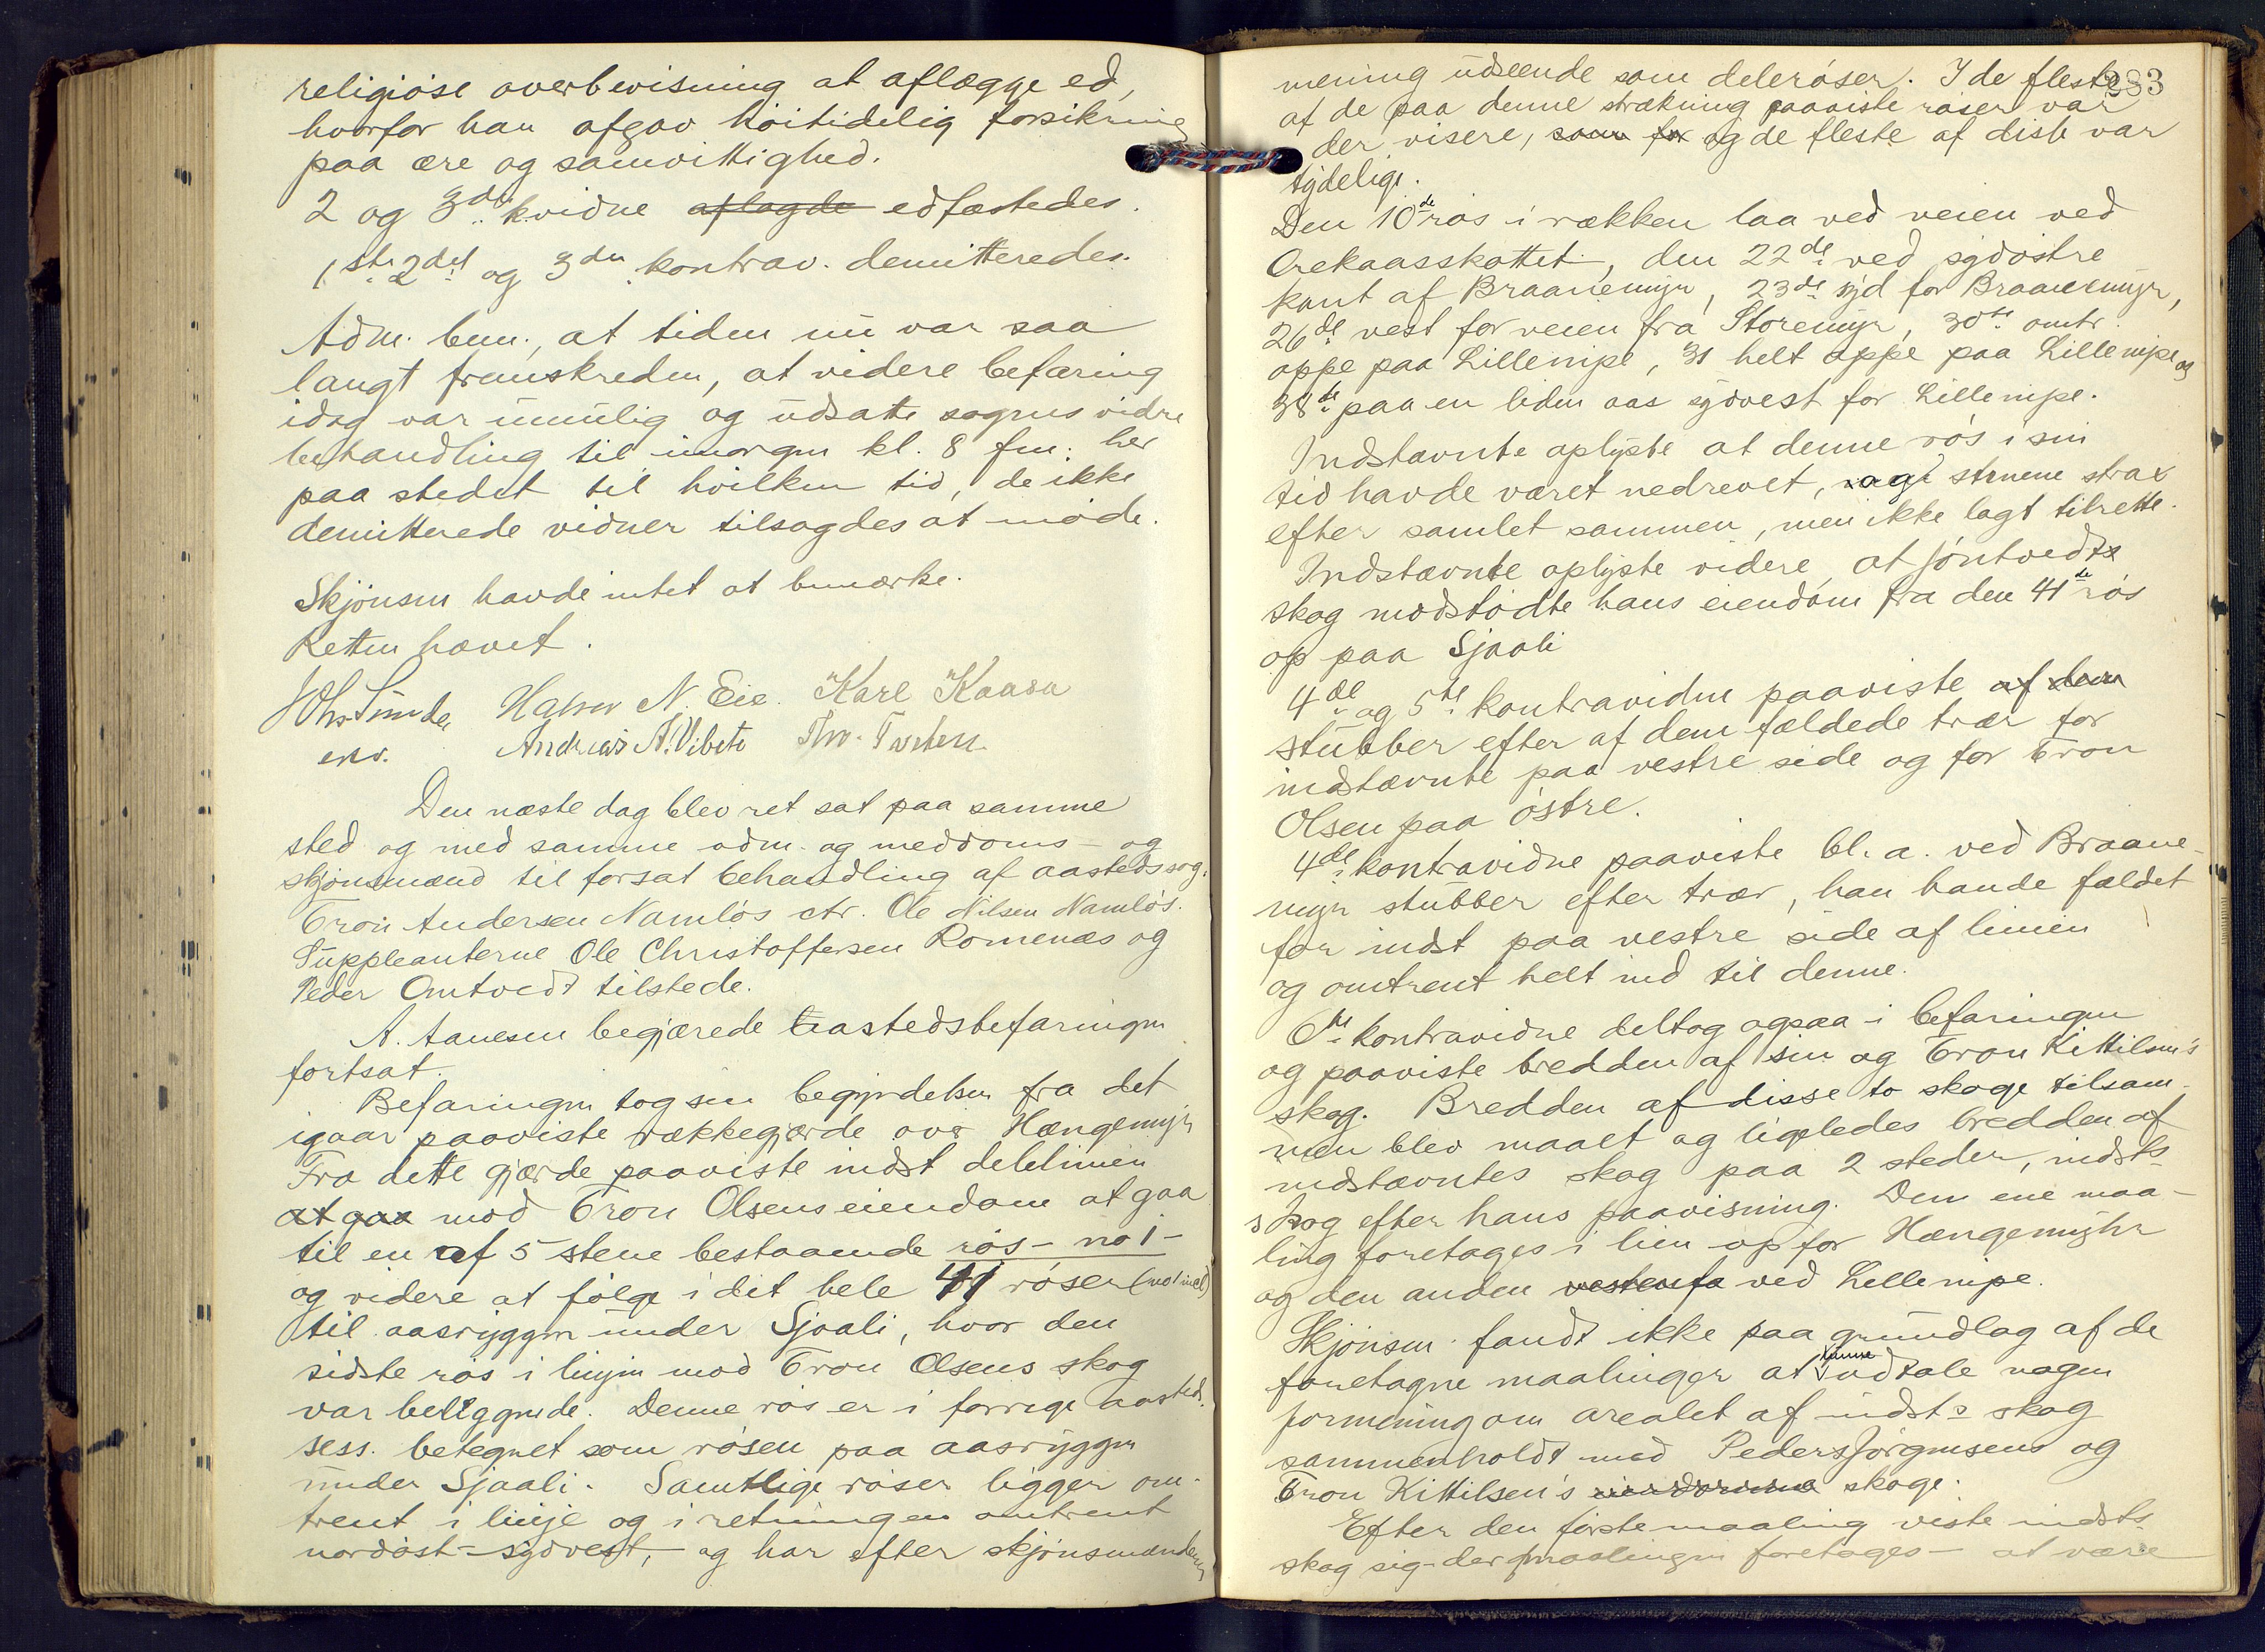 religiøse overbevisning at aflægge ed,
hvorfor han afgav høitidelig forsikring
paa ære og samvittighed.
2 og 3de kvidne aflagde edfæstedes.
1ste 2det og 3die kontrav. demitteredes.
Adm. bem., at tiden nu var saa
langt fremskreden, at videre befaring
idag var umulig og udsatte sagens vidre
behandling til imorgen kl. 8 fm. her
paa stedet til hvilken tid, de ikke
demitterede vidner tilsagdes at møde.
Skjønsm havde intet at bemærke.
Retten hævet.
Halvor N. Eie. Karl Kaasa
Andreas N. Vibeto
Den næste dag blev ret sat paa samme
sted og med samme adm. og meddoms- og
skjønsmænd til forsat behandling af aastedssag.
Tron Andersen Namløs ctr. Ole Nilsen Namløs.
Suppleanterne Ole Christoffersen Romenæs og
Peder Omtvedt tilstede.
A. Aanesen begjærede aastedsbefaringen
fortsat.
Befaringen tog sin begyndelsen fra det
igaar paaviste rækkegjærde over Hængemyr
Fra dette gjærde paaviste indst delelinien
at gaa mod Tron Olsens eiendom at gaa
til en af 5 stene bestaaende røs - no 1 -
og videre at følge i det hele 41 røser (no 1 incl)
til aasryggen under Sjaali, hvor den
sidste røs i linjen mod Tron Olsens skog
var beliggende. Denne røs er i forrige aasteds.
sess. betegnet som røsen paa aasryggen
under Sjaali. Samtlige røser ligger om-
trent i linje og i retningen omtrent
nordøst - sydvest, og har efter skjønsmændenes
283
mening udseende som delerøser. I de fleste
af de paa denne strækning paaviste røser var
der visere, som for og de fleste af disse var
tydelige.
Den 10de røs i rækken laa ved veien ved
Orekaasskottet, den 22de ved sydøstre
kant af Braanemyr, 23de syd for Braanemyr,
26de vest for veien fra Storemyr, 30te omtr.
oppe paa Lillenipe, 31 helt oppe paa Lillenipe og
38de paa en liden aas sydvest for Lillenipe.
Indstævnte oplyste at denne røs i sin
tid havde været nedrevet, og stenene strax
efter samlet sammen, men ikke lagt tilrette.
Indstævnte oplyste videre, at Jøntvedts
skog modstødte hans eiendom fra den 41de røs
op paa Sjaali
4de og 5te kontravidne paaviste af dem
stubber efter af dem fældede trær for
indstævnte paa vestre side og for Tron
Olsen paa østre.
4de kontravidne paaviste bl. a. ved Braane-
myr stubber efter trær, han havde fældet
for indst paa vestre side af linien
og omtrent helt ind til denne.
6te kontravidne deltog ogsaa i befaringen
og paaviste bredden af sin og Tron Kittilsen's
skog. Bredden af disse to skoge tilsam-
men blev maalt og ligeledes bredden af
indstævntes skog paa 2 steder, indsts
skog efter hans paavisning. Den ene maa-
ling foretages i lien op for Hængemyhr
og den anden vestenfo ved Lillenipe.
Skjønsm fandt ikke paa grundlag af de
foretagne maalinger at kunne udtale nogen
formening om arealet af indsts skog
sammenholdt med Peder Jørgensens og
Tron Kittilsen's eiendomme skoge.
Efter den første maaling viste indsts
skog sig - der maalingen foretages - at være